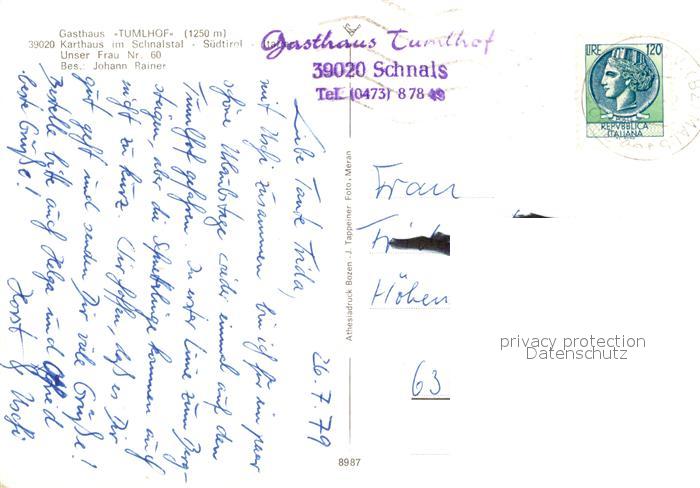 Gasthaus »TUMLHOF« (1250 m)
39020 Karthaus im Schnalstal - Südtirol
Unser Frau Nr. 60
Bes.: Johann Rainer
Gasthaus Tumlhof
39020 Schnals
Tel. (0473) 8 78 49
LIRE 120
REPVBBLICA
ITALIANA
26.7.79
Liebe Tante Frida,
mit Uschi zusammen bin ich für ein paar
schöne Urlaubstage wieder einmal auf den
Tumlhof gefahren. In erster Linie zum Berg-
steigen, aber die kommen auch
nicht zu kurz. Wir hoffen, daß es Dir
gut geht und senden Dir viele Grüße!
Bestelle bitte auch Helga und Alfred
beste Grüße!
Horst & Uschi
Athesiadruck Bozen J. Tappeiner Foto, Meran
8987
Frau
Höhen
63
privacy protection
Datenschutz